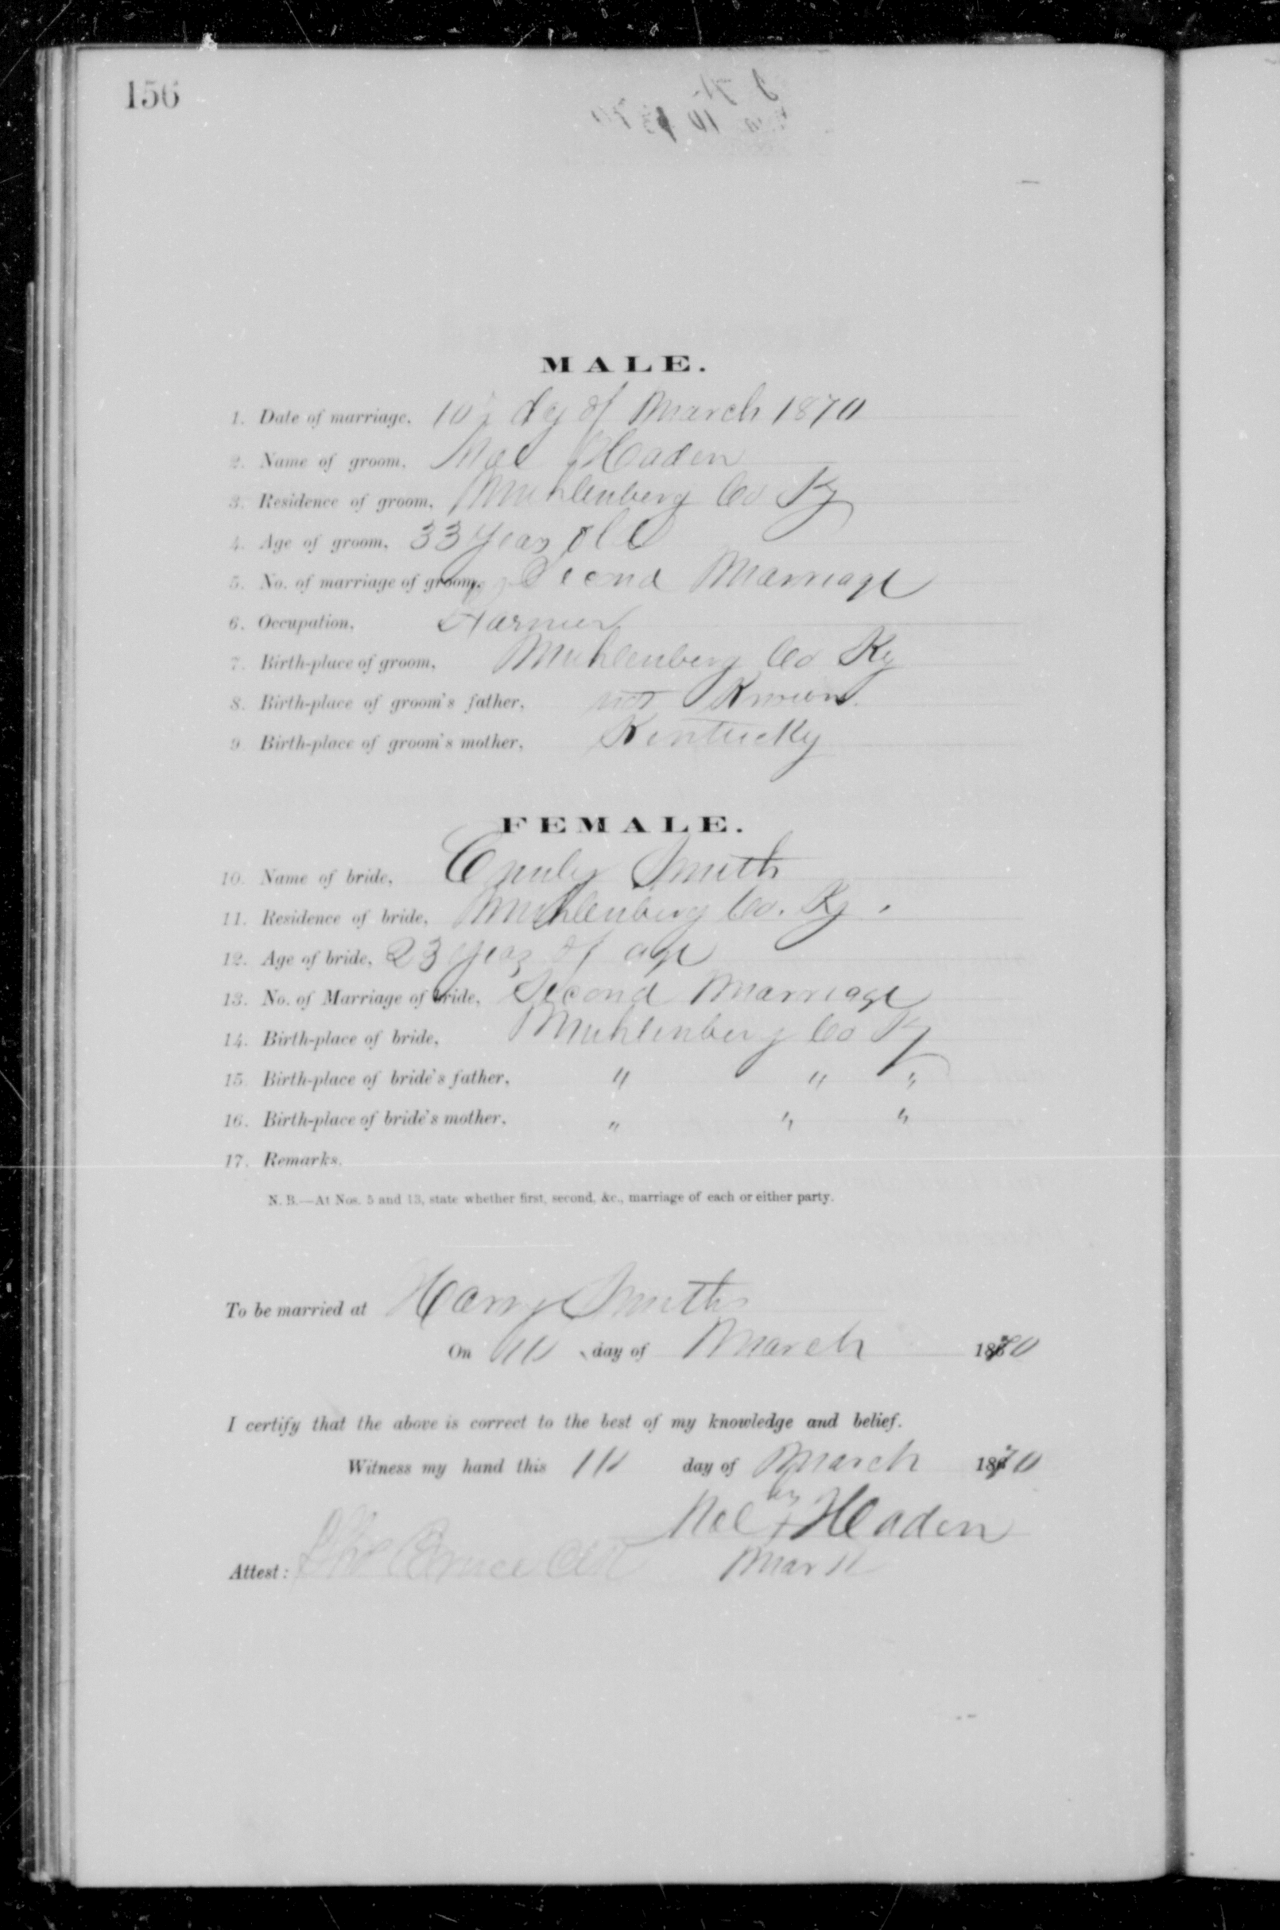 156
MALE.
1. Date of marriage, 10 dy of March 1870
2. Name of groom, Haden
3. Residence of groom, Muhlenberg Co Ky
4. Age of groom, 33 years old
5. No. of marriage of groom, Second Marriage
6. Occupation, Farmer
7. Birth-place of groom, Muhlenberg Co Ky
8. Birth-place of groom's father, not Known
9. Birth-place of groom's mother, Kentucky
FEMALE.
10. Name of bride, Emily Smith
11. Residence of bride, Muhlenberg Co. Ky.
12. Age of bride, 23 years of age
13. No. of Marriage of bride, Second Marriage
14. Birth-place of bride, Muhlenberg Co Ky
15. Birth-place of bride's father, " " "
16. Birth-place of bride's mother, " " "
17. Remarks.
N. B.—At Nos. 5 and 13, state whether first, second, &c., marriage of each or either party.
To be married at Harry Smiths
On 10 day of March 1870
I certify that the above is correct to the best of my knowledge and belief.
Witness my hand this 10 day of March 1870
his
X Haden
Mark
Attest: Bruce Clk